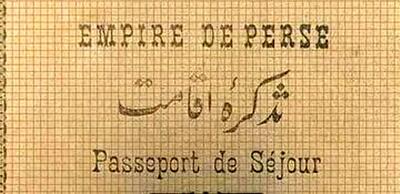 EMPIRE DE PERSE
تذکرهٔ اقامت
Passeport de Séjour